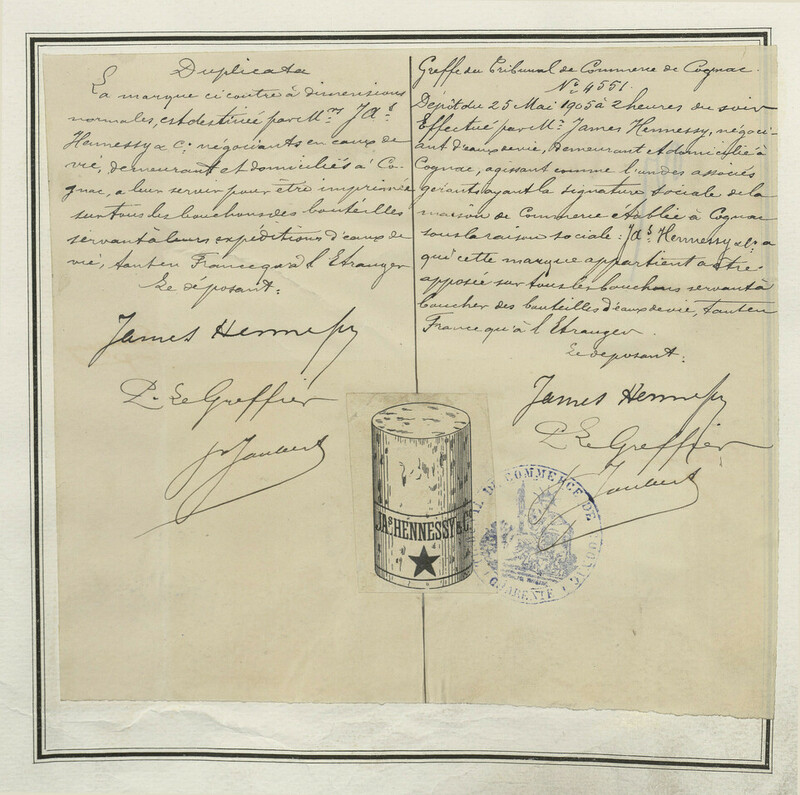 Duplicata
La marque ci contre à dimensions
normales, est destinée par Mrs JAs
Hennessy & Co négociants en eaux de
vie, demeurant et domiciliés à Co-
gnac, a leur servir pour être imprimée
sur tous les bouchons des bouteilles
servant à leurs expéditions d'eaux de
vie, tant en France qu'à l'Etranger
Le déposant:
James Hennessy
P. Le Greffier
Joubert
Greffe du Tribunal de Commerce de Cognac.
No 4551.
Dépôt du 25 Mai 1905 à 2 heures du soir
Effectué par Mr James Hennessy, négoci-
ant d'eaux de vie, demeurant et domicilié à
Cognac, agissant comme l'un des associés
gérants ayant la signature sociale de la
maison de Commerce établie à Cognac
sous la raison sociale: JAs Hennessy & Co a
qu'cette marque appartient a être
apposée sur tous les bouchons servant à
boucher des bouteilles d'eaux de vie, tant en
France qu'à l'Etranger.
Le déposant:
James Hennessy
P. Le Greffier
Joubert
JAs HENNESSY & Co
TRIBUNAL DE COMMERCE DE COGNAC
CHARENTE